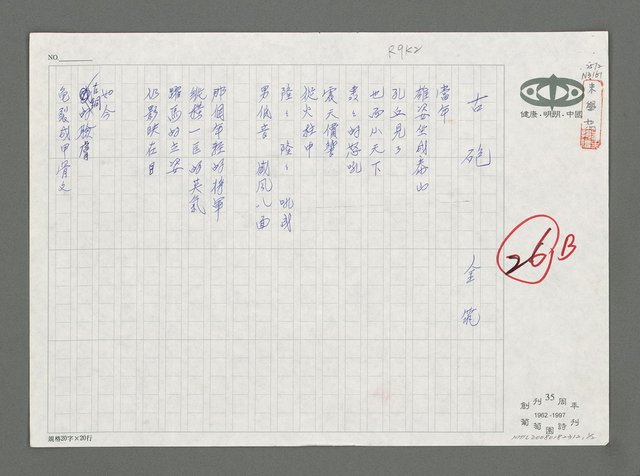 NO.
R9K2
健康·明朗·中國
古砲 金筑
當年
雄姿坐到泰山
孔丘見了
也而小天下
轟轟的怒吼
震天價響
從火柱中
隆隆隆隆吼成
男低音 威風八面
那個年輕的將軍
縱橫一區的英氣
躍馬的立姿
仍影映在目
如今
古銅的臉膚
龜裂成甲骨文
26 B
創刊35周年
1962-1997
葡萄園詩刊
規格20字×20行